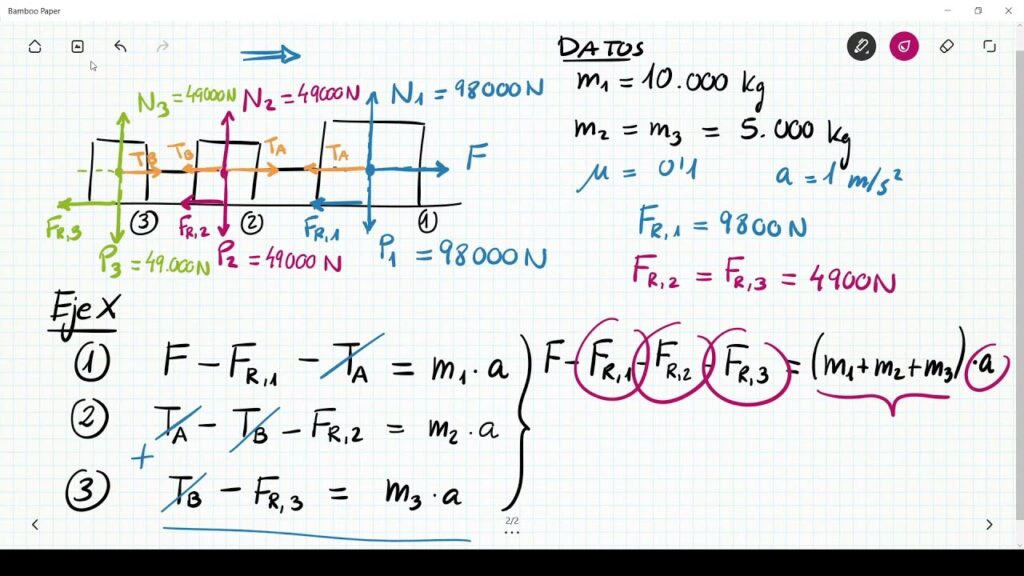 Bamboo Paper
DATOS
m₁ = 10.000 kg
m₂ = m₃ = 5.000 kg
μ = 0'1 a = 1 m/s²
F_R,1 = 9800N
F_R,2 = F_R,3 = 4900N
N₃ = 49000N N₂ = 49000N N₁ = 98000N
T_B T_B T_A T_A F
F_R,3 ③ F_R,2 ② F_R,1 ①
P₃ = 49.000N P₂ = 49000 N P₁ = 98000N
Eje X
① F - F_R,1 - T_A = m₁ · a
② T_A - T_B - F_R,2 = m₂ · a
+
③ T_B - F_R,3 = m₃ · a
F - F_R,1 - F_R,2 - F_R,3 = (m₁ + m₂ + m₃) · a
2/2